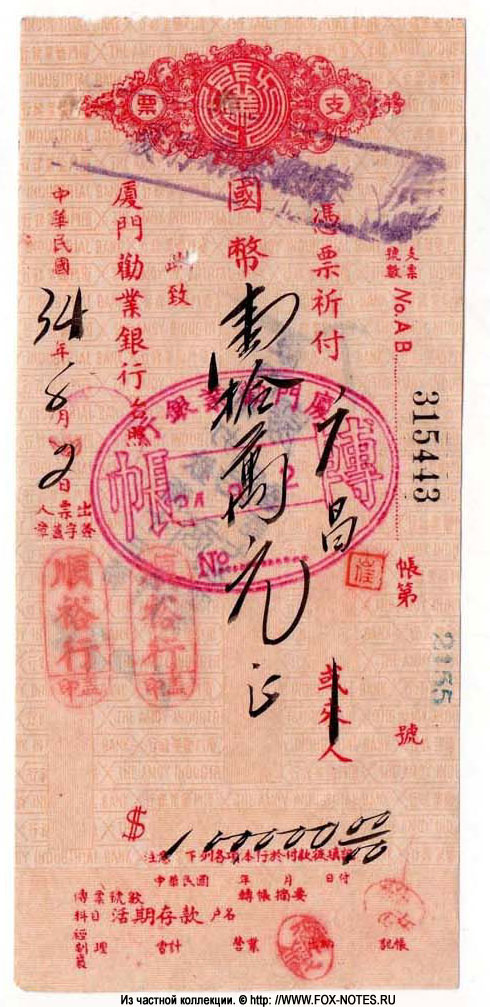 支票
支票號數 No. AB 315443
帳第 2155 號
憑票祈付 广昌 或來人
國幣 壹拾萬元正
此致
廈門勸業銀行 台照
中華民國 34 年 8 月 2 日
出票人 簽字蓋章
順裕行
順裕行
廈門勸業銀行
轉帳
No
$ 100000 00/00
注意 下列各項本行於付款後填記
中華民國 年 月 日付
傳票號數 轉帳摘要
科目 活期存款 户名
經副襄理 會計 營業 出納 記帳
Из частной коллекции. © http://WWW.FOX-NOTES.RU